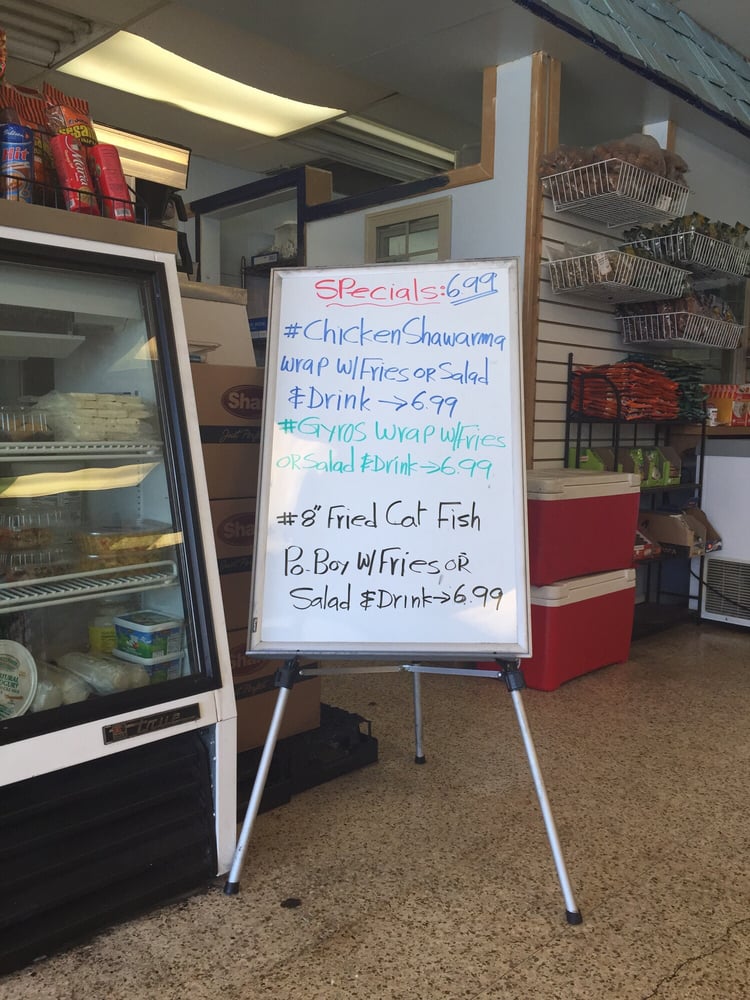 SPecials:6.99
#ChickenShawarma
Wrap W/Fries OR Salad
&Drink→6.99
#Gyros Wrap W/Fries
OR Salad &Drink→6.99
#8" Fried Cat Fish
Po.Boy W/Fries OR
Salad &Drink→6.99
true